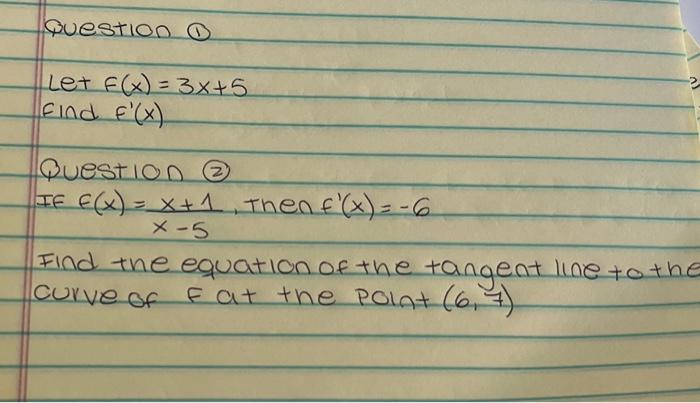 Question ①
Let f(x) = 3x+5
Find f'(x)
Question ②
If f(x) = x+1 / x-5, Then f'(x) = -6
Find the equation of the tangent line to the
curve of f at the point (6,7)
2